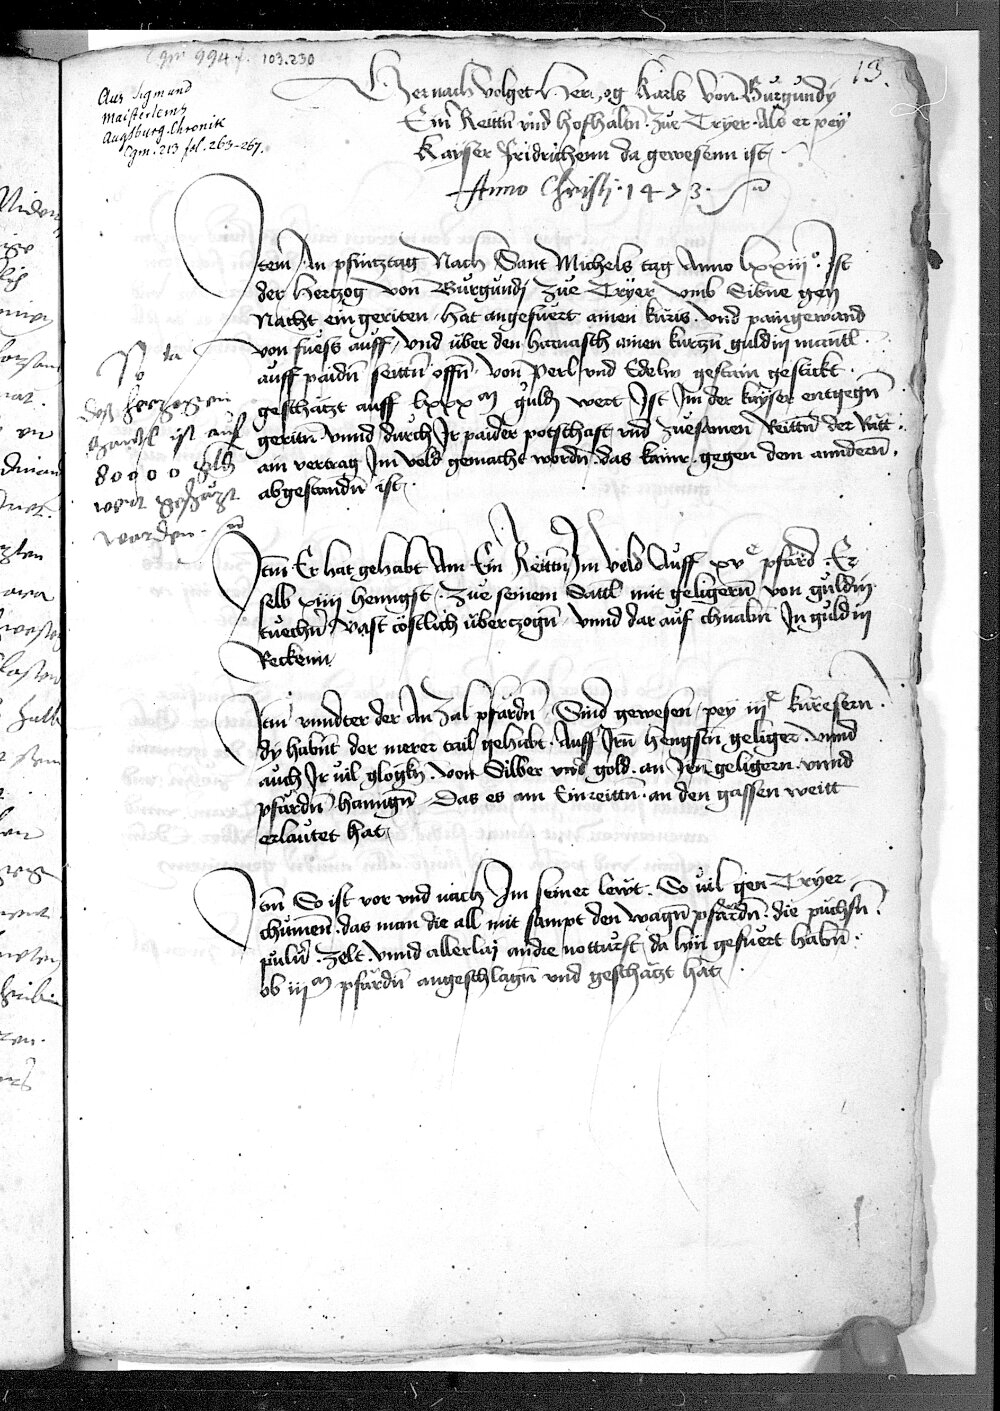 Cgm 994 f. 103.230
13.
Aus Sigmund
Meisterleins
Augsburg. Chronik
Cgm. 213 fol. 263-267.
Hernach volget Herczog Karls von Burgundy
Ein Reittn vnd hofhaltn zue Tryer als er pey
Kayser Fridrichenn da gewesenn ist
Anno Christi 1473.
Item An pfintztag Nach Sant Michels tag Anno lxxiii° Ist
der Hertzog von Burgundj zue Tryer vmb Sibne gen
Nacht ein geriten, hat angefuert ainen kuris vnd paingewand
von fuess auff, vnd über den harnasch ainen kurtzn guldin mantl.
auff paidn seittn offn von Perl vnd Edelm gestain gestickt
geschätzt auff lxxx m guldn wert Ist Im der kayser entgegn
geritn vnnd durch Ir paider potschaft vnd zuesamen Reittn der Ritt
ain vertrag Im veld gemacht wordn das kainr gegen dem anndern
abgestandn ist.
des herzogen
mantl ist auf
80000 gld
wert geschätzt
worden.
Itm Er hat gehabt Am Ein Reittn Im veld Auff xv c pfärd Er
selb xiiii henngst zue seinem Sattl mit geligern von guldin
tuechn vast cöstlich überczogn vnnd dar auf chnabn In guldin
Reckenn
Itm vnndter der An Zal pfärdn Sind gewesen pey iii c küresern.
dy habnt der merer tail gehabt Auff Irn hengstn geliger vnnd
auch Ir vil glogln von Silber vnd gold an Irn geligern vnnd
pfärdn hanngn Das es am Einreittn an den gassen weitt
erlautet hat
Itm So ist vor vnd nach Im seiner lewt So vil gen Tryer
chumen das man die all mit sampt den wagn pfärdn die puchsn
puluer Zelt vnnd allerlaj andre notturft da hin gefuert habn
ob iii m pfärdn angeschlagn vnd geschätzt hat